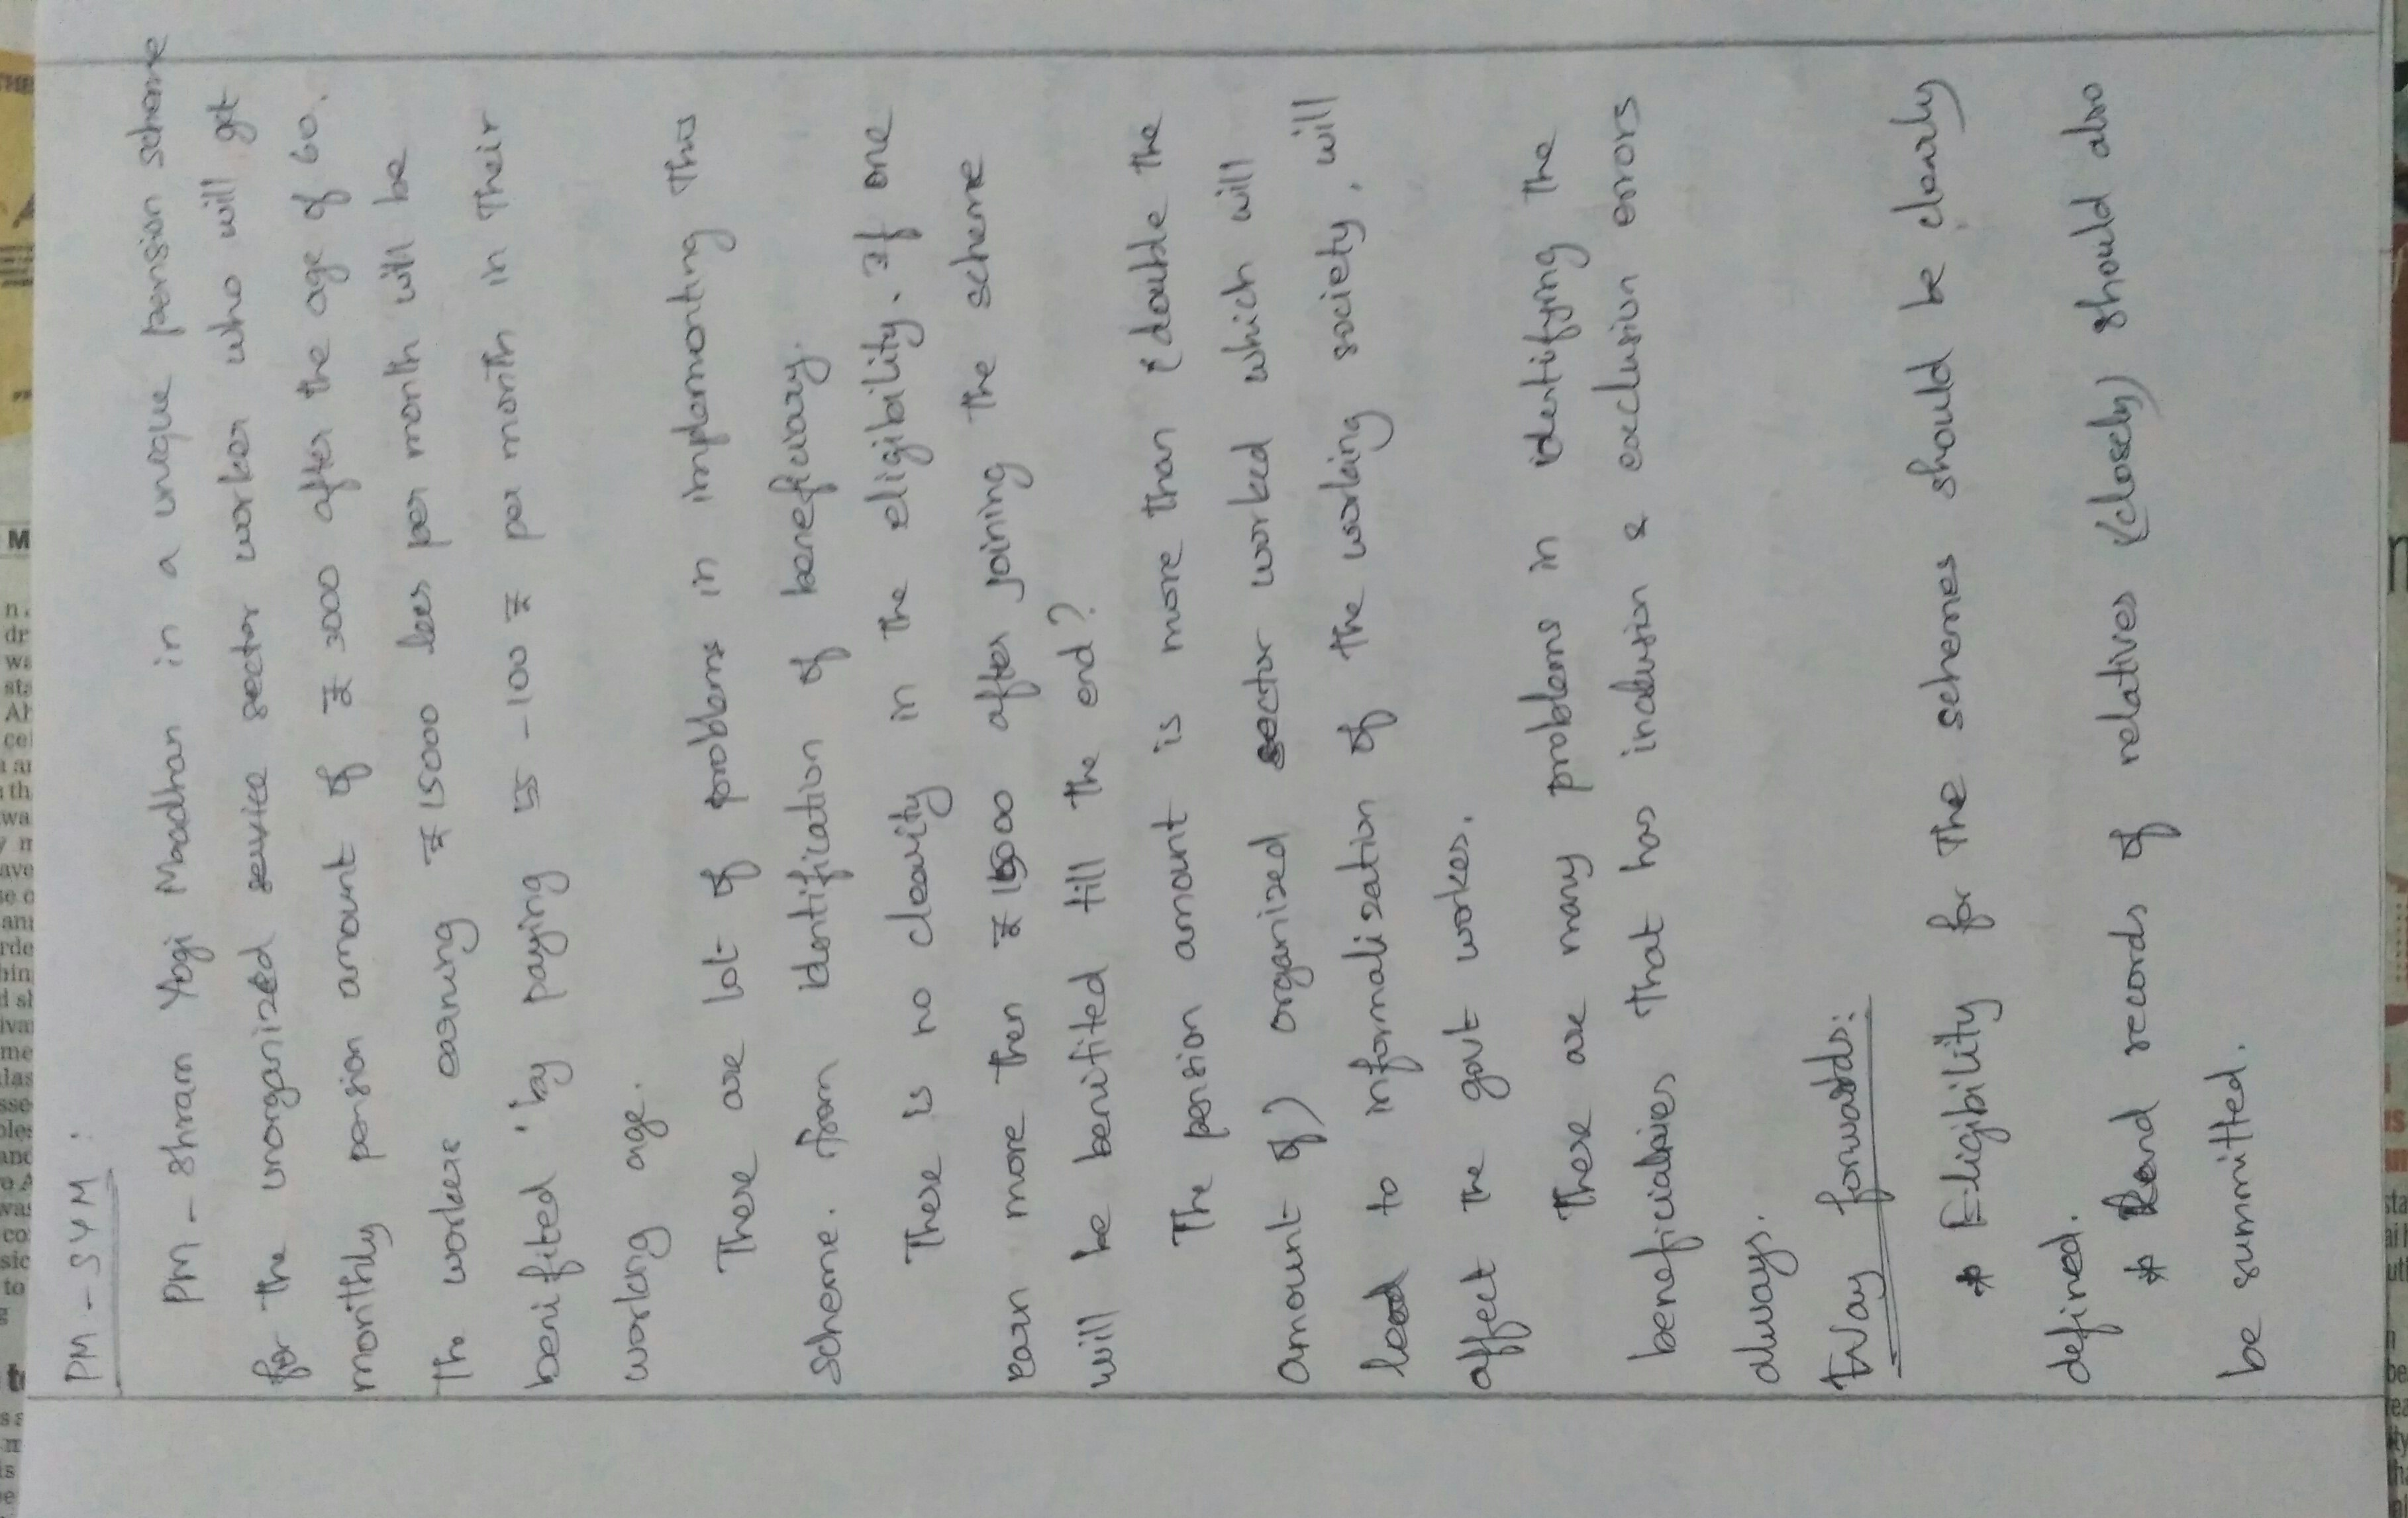 PM - SYM :
PM - Shram Yogi Maadhan in a unique pension scheme
for the unorganized service sector worker who will get
monthly pension amount of ₹ 3000 after the age of 60.
The workers earning ₹ 15000 less per month will be
benifited by paying 55 - 100 ₹ per month in their
working age.
There are lot of problems in implementing this
scheme. from identification of beneficiary.
There is no clearity in the eligibility. If one
earn more then ₹ 15000 after joining the scheme
will be benifited till the end?
The pension amount is more than (double the
amount of) organized sector worked which will
lead to informalization of the working society, will
affect the govt workes.
These are many problems in identifying the
beneficiaries that has inclusion & exclusion errors
always.
Way forwards:
* Eligibility for the schemes should be clearly
defined.
* Land records of relatives (closely) should also
be summitted.